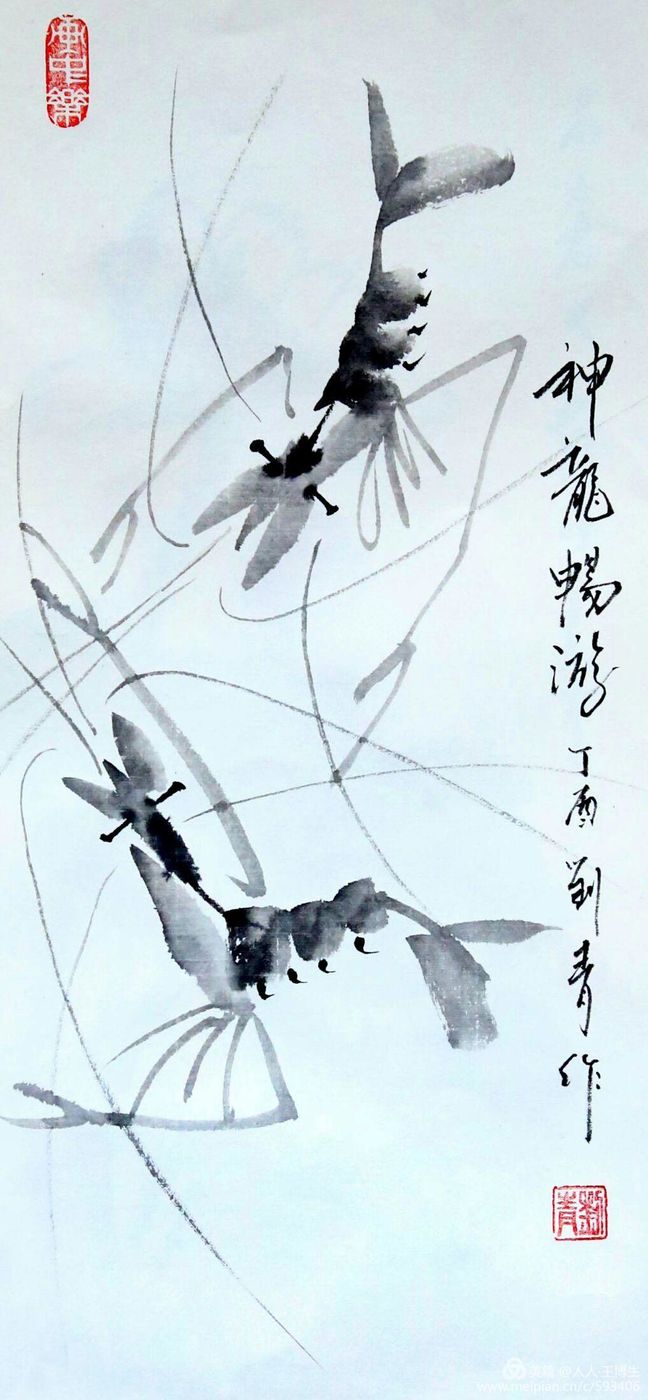 中樂
神龍暢游 丁酉 劉青作
劉青
美篇 @人人·王博生
www.meipian.cn/c/593406